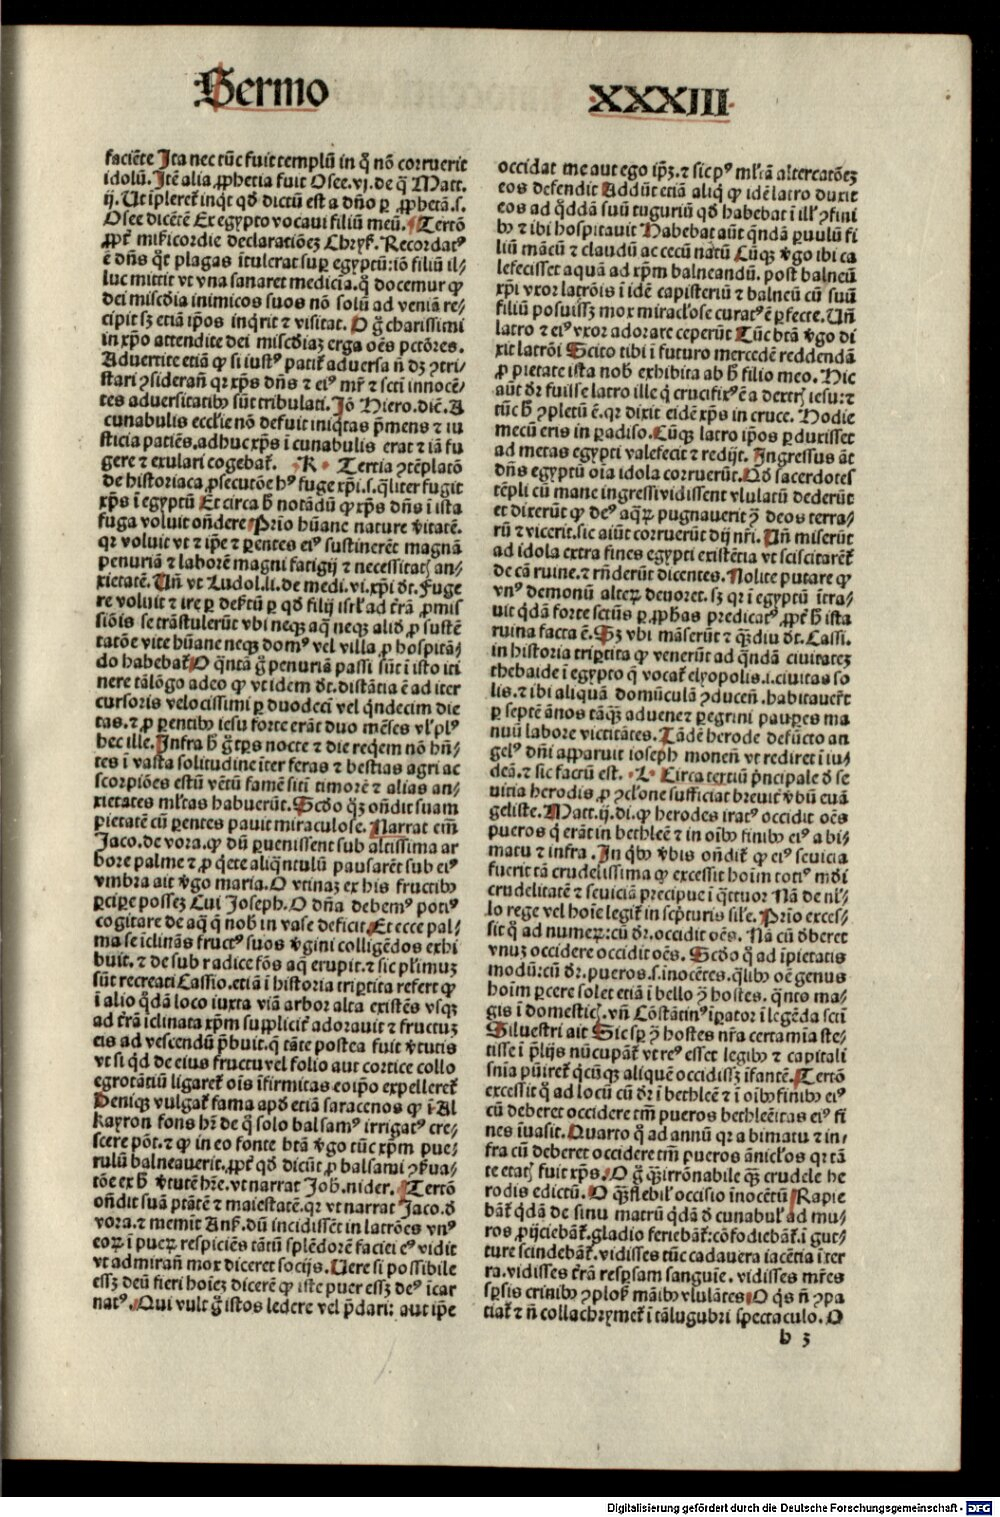 Sermo XXXIII
faciēte Ita nec tūc fuit templū in q̄ nō corruerit
idolū. Itē alia ꝓphetia fuit Osee. vj. de q̄ Matt.
ij. Ut īpleretˀ inqͥt qď dictū est a dn̄o ꝑ ꝓphetā. s.
Osee dicētē Ex egypto vocaui filiū meū. Tertō
ꝓpt̄ mīs̄ericordie declaratiōeꝫ Chrys̄. Recordatꝰ
ē dn̄s qͥ plagas ītulerat suꝑ egyptū: iō filiū il⸗
luc mittit vt vna sanaret medicīa. q̄ docemur ꝙ
dei miscd̄ia inimicos suos nō solū ad veniā re⸗
cipit sꝫ etiā ip̄os inqͥrit ⁊ visitat. O g̊ charissimi
in xp̄o attendite dei miscd̄iaꝫ erga oēs pctōres.
Aduertite etiā ꝙ si iustꝰ patit̄ aduersa n̄ dꝫ ꝯtri⸗
stari ꝯsiderans qr xp̄s dn̄s ⁊ eiꝰ mr̄ ⁊ scti innocē⸗
tes aduersitatibꝰ sūt tribulati. Iō Hiero. dic̄. A
cunabulis eccl̄ie nō defuit iniqͥtas p̄mens ⁊ iu
sticia patiēs. adhuc xp̄s ī cunabulis erat ⁊ iā fu
gere ⁊ exulari cogebat̄. K Tertia ꝯtēplatō
de historiaca ꝓsecutōe hꝰ fuge xp̄i. s. qͣliter fugit
xp̄s ī egyptū Et circa h̄ notādū ꝙ xp̄s dn̄s ī ista
fuga voluit on̄dere Prīo hūane nature v̄itatē.
qr voluit vt ⁊ ip̄e ⁊ ꝑentes eiꝰ sustinerēt magnā
penuriā ⁊ laborē magni fatigij ⁊ necessitatꝭ an⸗
xietatē. Un̄ vt Ludol. li. de medi. vi. xp̄i d̄t. Fuge
re voluit ⁊ ire ꝑ desertū ꝑ qď filij isrl̄ ad t̄rā ꝓmis
siōis se trāstulerūt vbi neqꝫ aq̄ neqꝫ aliď ꝓ sustē
tatōe vite hūane neqꝫ domꝰ vel villa ꝓ hospitā⸗
do habebat̄ O qͣntā g̊ penuriā passi sūt ī isto iti
nere tālōgo adeo ꝙ vt idem d̄t. distātia ē ad iter
cursoris velocissimi ꝑ duodecī vel qͥndecim die
tas. ⁊ ꝓ ꝑentibꝰ iesu forte erāt duo mēses vl̓ plꝰ
hec ille. Infra h̄ g̊ tꝑs nocte ⁊ die reqͥem nō hn̄⸗
tes ī vasta solitudine īter feras ⁊ bestias agri ac
scorpiōes estū vētū famē sitī timorē ⁊ alias an⸗
xietates ml̓tas habuerūt. Scďo qͦꝫ on̄dit suam
pietatē cū ꝑentes pauit miraculose. Narrat em̄
Jaco. de vora. ꝙ dū ꝑuenissent sub altissima ar
bore palme ⁊ ꝓ qͥete aliqͣntulū pausarēt sub eiꝰ
vmbra ait v̄go maria. O vtinaꝫ ex his fructibꝰ
ꝑciꝑe posseꝫ Cui Joseph. O dn̄a debemꝰ potiꝰ
cogitare de aq̄ q̄ nob̄ in vase deficit. Et ecce pal⸗
ma se īclināꝰ fructꝰ suos v̄gini colligēdos exhi
buit. ⁊ de sub radice fōs aq̄ erupit. ⁊ sic pl̄imuꝫ
sūt recreati Cassio. etiā ī historia triꝑtita refert ꝙ
ī alio qͦdā loco iuxta viā arbor alta existēs vsqꝫ
ad t̄rā īclinata xp̄m supplicit̄ adorauit ⁊ fructuꝫ
eis ad vescendū p̄buit. q̄ tāte postea fuit v̄tutis
vt si qͥd de eius fructu vel folio aut cortice collo
egrotātiū ligaret̄ oīs īfirmitas eoip̄o expelleret̄
Deniqꝫ vulgat̄ fama apď etiā saracenos ꝙ ī Al
kayron fons hr̄ de q̄ solo balsamꝰ irrigatꝰ cre⸗
scere pōt. ⁊ ꝙ in eo fonte btā v̄go tūc xp̄m pue⸗
rulū balneauerit. ꝓpt̄ qď dicūt ꝓ balsami ꝯẜua⸗
tōe ex h̄ v̄tutē hr̄e. vt narrat Joh̄. nider. Tertō
on̄dit suā ptātē ⁊ maiestatē. qr vt narrat Jaco. ď
vora. ⁊ memīt Ans̄. dū incidissēt in latrōes vnꝰ
eoꝝ ī pueꝝ respiciēs tātū splēdorē faciei eꝰ vidit
vt admiran̄ mox diceret socijs. Uere si possibile
essꝫ deū fieri hoīeꝫ dicerē ꝙ iste puer essꝫ deꝰ īcar
natꝰ. Qui vult g̊ istos ledere vel p̄dari: aut ip̄e
occidat me aut ego ip̄ꝫ. ⁊ sic pꝰ ml̓tā altercatōeꝫ
eos defendit Addūt etiā aliqͥ ꝙ idē latro duxit
eos ad qͦddā suū tuguriū qď habebat ī ill̓ ꝯfini
bꝰ ⁊ ibi hospitauit Habebat aūt qͥndā ꝑuulū fi
liū mācū ⁊ claudū ac cecū natū Cūqꝫ v̄go ibi ca
lefecisset aquā ad xp̄m balneandū. post balneū
xp̄i vxor latrōis ī idē capisteriū ⁊ balneū cū suū
filiū posuissꝫ mox miracl̓ose curatꝰ ē ꝑfecte. Un̄
latro ⁊ eiꝰ vxor adorare ceperūt Tūc btā v̄go di
xit latrōi Scito tibi ī futuro mercedē reddendā
ꝓ pietate ista nob̄ exhibita ab h̄ filio meo. Hic
aūt dr̄ fuisse latro ille qͥ crucifixꝰ ē a dextrꝭ iesu: ⁊
tūc h̄ ꝯpletū ē. qr dixit eidē xp̄s in cruce. Hodie
mecū eris in ꝑadiso. Cūqꝫ latro ip̄os ꝑduxisset
ad metas egypti valefecit ⁊ redijt. Ingressus āt
dn̄s egyptū oīa idola corruerūt. Qď sacerdotes
tēpli cū mane ingressi vidissent vlulatū dederūt
et dixerūt ꝙ deꝰ aqͣꝝ pugnauerit ꝯ̄ deos terra⸗
rū ⁊ vicerit. sic aiūt corruerūt dij nr̄i. Un̄ miserūt
ad idola extra fines egypti existētia vt sciscitarēt̄
de cā ruine. ⁊ rn̄derūt dicentes. Nolite putare ꝙ
vnꝰ demonū alteꝝ deuoret. sꝫ qr ī egyptū ītra⸗
uit qͥdā forte sctūs ꝑ ꝓphas predicatꝰ. ꝓpt̄ h̄ ista
ruina facta ē. Sꝫ vbi māserūt ⁊ qͣꝫdiu d̄t. Cassi.
in historia triꝑtita ꝙ venerūt ad qͣndā ciuitateꝫ
thebaide ī egypto q̄ vocat̄ elyopolis. i. ciuitas so
lis. ⁊ ibi aliquā domūculā ꝯducen̄. habitauer̄t
ꝑ septē ānos tāqͣꝫ aduene ⁊ ꝑegrini pauꝑes ma
nuū labore victitātes. Tādē herode defūcto an
gelꝰ dn̄i apparuit ioseph monen̄ vt rediret ī iu⸗
deā. ⁊ sic factū est. L Circa tertiū p̄ncipale ď se
uitia herodis. ꝓ ꝯcl̓one sufficiat breuit̄ v̄bū euā
geliste. Matt. ij. di. ꝙ herodes iratꝰ occidit oēs
pueros qͥ erāt in bethleē ⁊ in oībꝰ finibꝰ eiꝰ a bi⸗
matu ⁊ infra. In qͥbꝰ v̄bis on̄dit̄ ꝙ eiꝰ seuicia
fuerit tā crudelissima ꝙ excessit hoīm totiꝰ mūdi
crudelitatē ⁊ seuiciā precipue ī qͣttuor Nā de nl̓⸗
lo rege vel hoīe legit̄ in scp̄turis sil̓e. Prīo exces⸗
sit qͦ ad numeꝝ: cū dr̄. occidit oēs. Nā cū ďberet
vnuꝫ occidere occidit oēs. Scďo qͦ ad īpietatis
modū: cū dr̄. pueros. s. īnocētes. qͥlibꝫ oē genus
hoīm ꝑcere solet etiā ī bello ꝯ̄ hostes. qͣnto ma⸗
gis ī domesticꝭ. vn̄ Cōstātinꝰ īꝑator ī legēda scti
Siluestri ait Sic sꝑ ꝯ̄ hostes nr̄a certamīa ste⸗
tisse ī p̄lijs nūcupāt̄ vt reꝰ esset legibꝰ ⁊ capitali
snīa pūiret̄ qͥcūqꝫ aliquē occidissꝫ īfantē. Tertō
excessit qͦ ad locū cū dr̄ ī bethleē ⁊ ī oībꝰ finibꝰ eiꝰ
cū deberet occidere tm̄ pueros bethleēitas eiꝰ fi
nes īuasit. Quarto qͦ ad annū qr a bimatu ⁊ in⸗
fra cū deberet occidere tm̄ pueros ānicl̓os qr tā
te etatꝭ fuit xp̄s. O g̊ qͣꝫ irrōnabile qͣꝫ crudele he
rodis edictū. O qͣꝫ flebil̓ occisio īnocētū Rapie
bāt̄ qͥdā de sinu matrū qͥdā ď cunabul̓ ad mu⸗
ros ꝓijciebāt̄. gladio feriebāt̄: cōfodiebāt̄. ī gut⸗
ture scindebāt̄. vidisses tūc cadauera iacētia īter
ra. vidisses t̄rā respersam sanguīe. vidisses mr̄es
sꝑsis crinibꝰ ꝯplosꝭ māibꝰ vlulātes O qͥs n̄ ꝯpa
tiat̄ ⁊ n̄ collachrymet̄ ī tā lugubri spectaculo. O
b 3
Digitalisierung gefördert durch die Deutsche Forschungsgemeinschaft - DFG